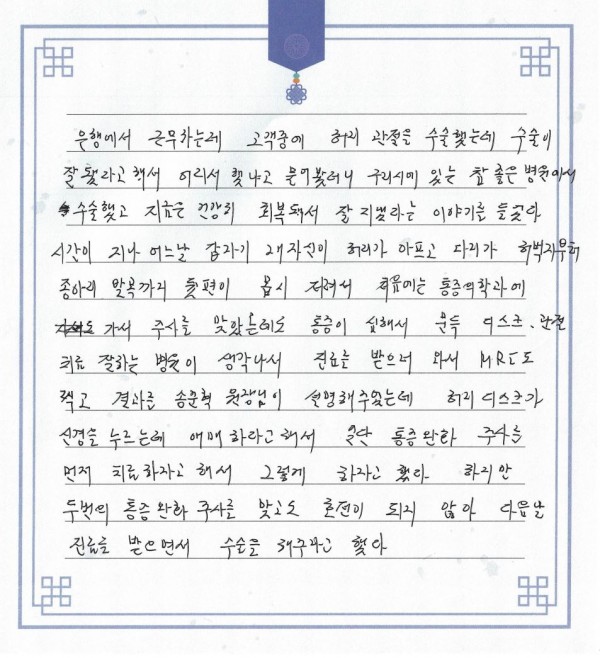 은행에서 근무하는데 고객중에 허리 관절을 수술했는데 수술이
잘 됐다고 해서 어디서 했냐고 물어봤더니 구리시에 있는 참 좋은 병원에서
수술했고 지금은 건강히 회복돼서 잘 지낸다는 이야기를 들었다
시간이 지나 어느날 갑자기 내자신이 허리가 아프고 다리가 허벅지부터
종아리 발목까지 뒷편이 몹시 저려서 처음에는 통증의학과에
가서 주사를 맞았는데도 통증이 심해서 문득 디스크, 관절
치료 잘하는 병원이 생각나서 진료를 받으러 와서 MRI도
찍고 결과를 송준혁 원장님이 설명해주었는데 허리 디스크가
신경을 누르는데 애매하다고 해서 일단 통증완화 주사를
먼저 치료하자고 해서 그렇게 하자고 했다 하지만
두번의 통증완화 주사를 맞고도 호전이 되지 않아 다음날
진료를 받으면서 수술을 해주라고 했다